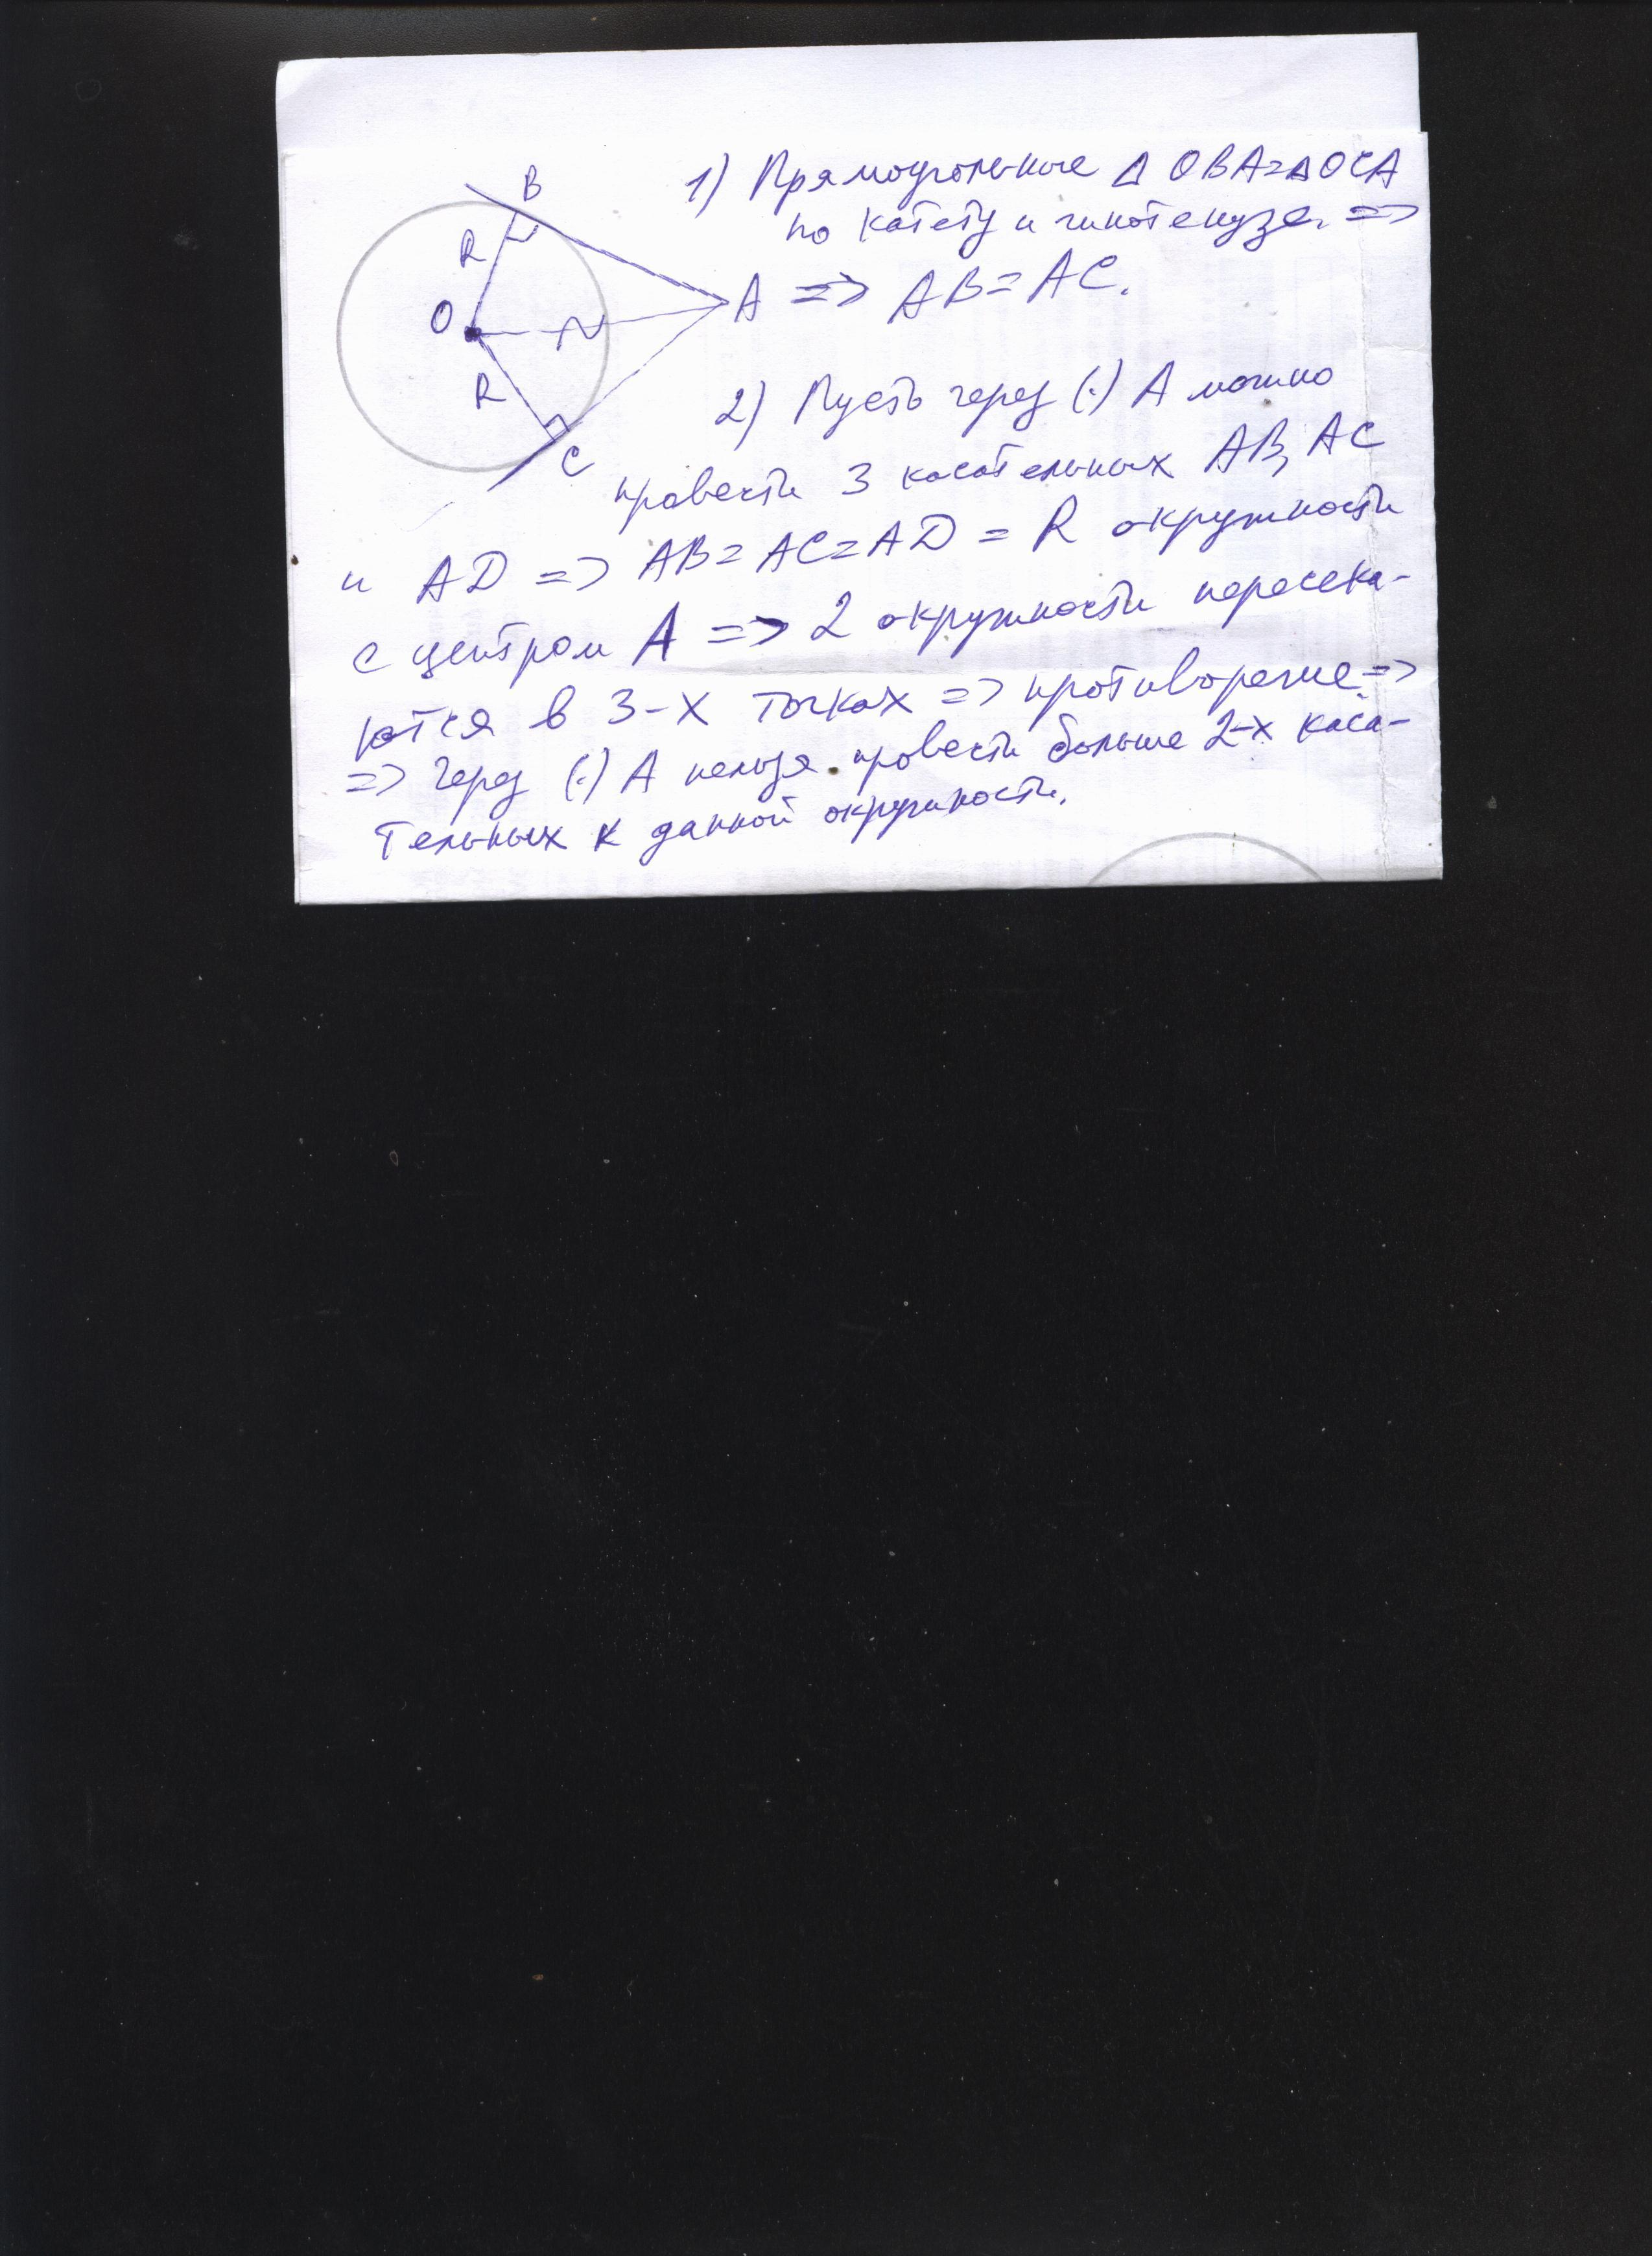 B
R
O
R
C
1) Прямоугольные Δ OBA=ΔOCA
по катету и гипотенузе. =>
A => AB=AC.
2) Пусть через (·) A можно
провести 3 касательных AB, AC
и AD => AB=AC=AD = R окружности
с центром A => 2 окружности пересека-
ются в 3-х точках => противоречие. =>
=> через (·) A нельзя провести больше 2-х каса-
тельных к данной окружности.